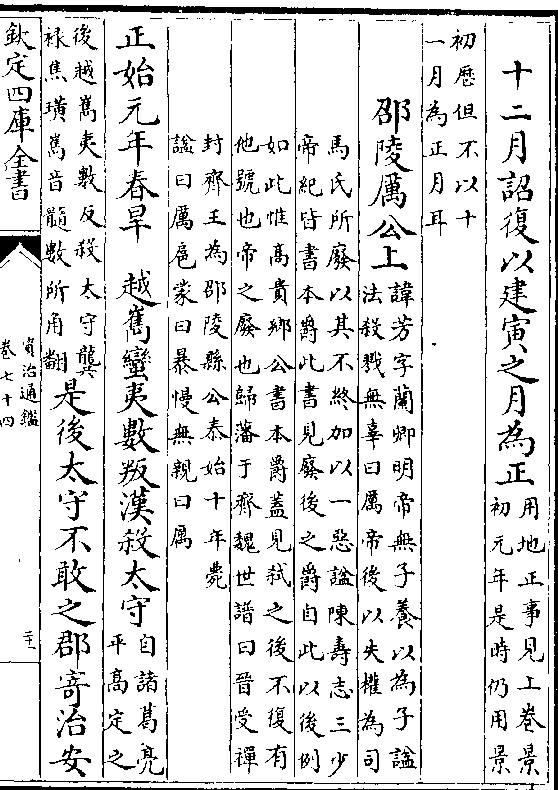 十二月詔復以建寅之月為正用地正事見上卷景
初元年是時仍用景
初歴但不以十
一月為正月耳
邵陵厲公上諱芳字蘭卿明帝無子養以為子諡
法殺戮無辜曰厲帝後以失權為司
馬氏所廢以其不終加以一惡諡陳壽志三少
帝紀皆書本爵此書見廢後之爵自此以後例
如此惟高貴鄉公書本爵蓋見弑之後不復有
他號也帝之廢也歸藩于齊魏世譜曰晉受禪
封齊王為邵陵縣公泰始十年薨
諡曰厲扈蒙曰暴慢無親曰厲
正始元年春旱　越嶲蠻夷數叛漢殺太守自諸葛亮
平高定之
後越嶲夷數反殺太守龔
禄焦璜嶲音髓數所角翻
是後太守不敢之郡寄治安
欽定四庫全書
資治通鑑
卷七十四